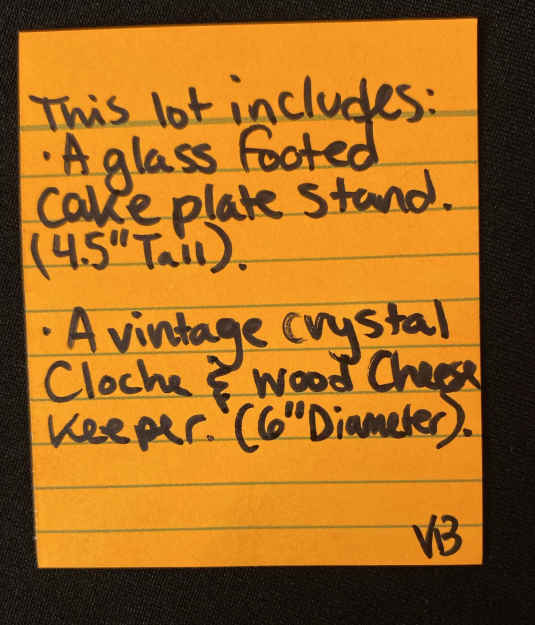 This lot includes:
·A glass footed
cake plate stand.
(4.5" Tall).
· A vintage crystal
Cloche & wood Cheese
Keeper. (6" Diameter).
VB